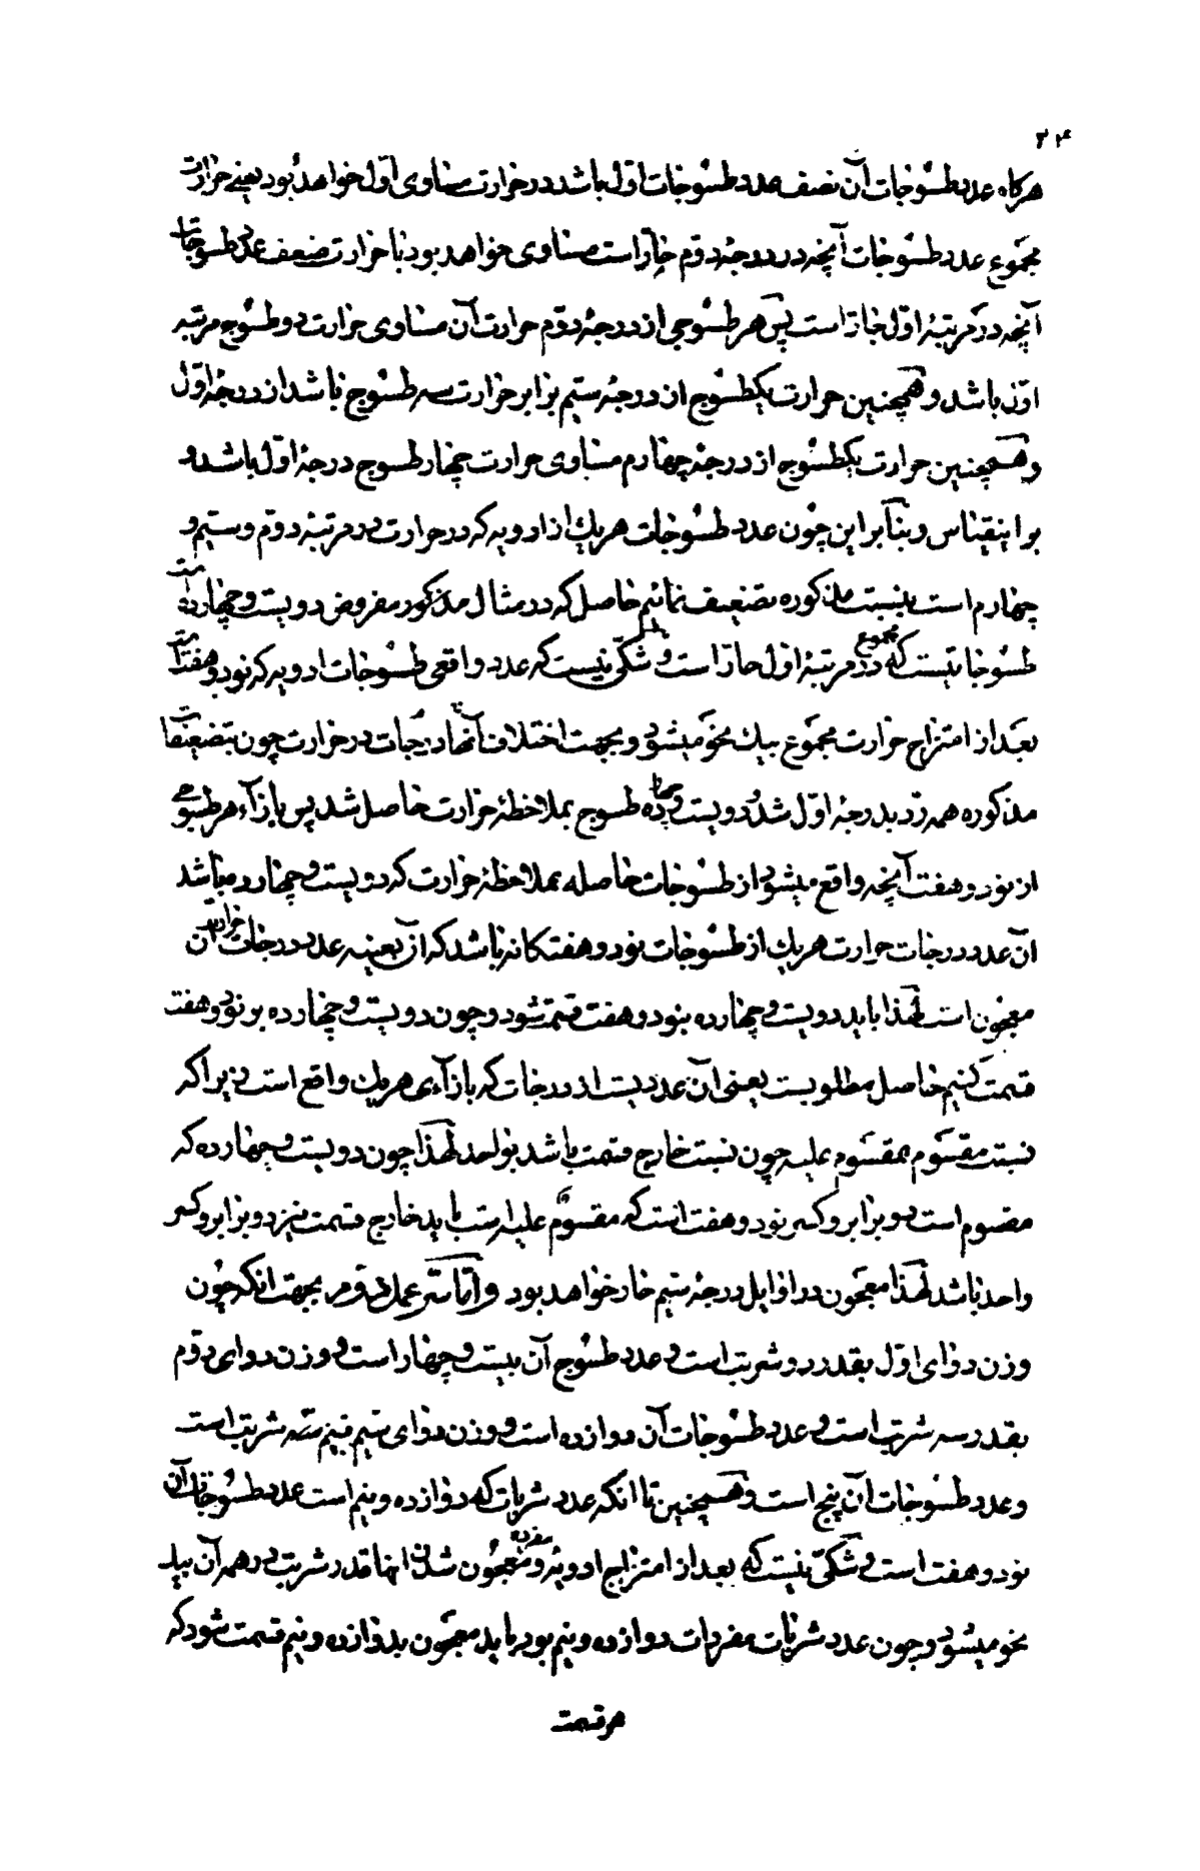 ۲۴
هرکاه عدد طسّوجات آن نصف عدد طسّوجات اوّل باشد در حرارت مساوی اوّل خواهد بود یعنی حرارت
مجموع عدد طسّوجات آنچه در درجۀ دوّم حارّ است مساوی خواهد بود با حرارت ضعف عدد طسوجات
آنچه در مرتبۀ اوّل حارّ است پس هر طسّوجی از درجۀ دوّم حرارت آن مساوی حرارت دو طسّوج مرتبه
اوّل باشد و همچنین حرارت یکطسّوج از درجۀ سیّم برابر حرارت سه طسّوج باشد از درجۀ اوّل
و همچنین حرارت یکطسّوج از درجۀ چهارم مساوی حرارت چهار طسوج درجۀ اوّل باشد و
بر اینقیاس و بنآ بر این چون عدد طسّوجات هریك از ادویه که در حرارت در مرتبۀ دوّم و سیّم و
چهارم است بنسبت مذکوره تضعیف نمائیم حاصل که در مثال مذکور مفروض دویست و چهارده است
طسّوجاتیست که مجموع در مرتبۀ اوّل حارّ است و شکّی نیست که عدد واقعی طسّوجات ادویه که نود و هفت است
بعد از امتزاج حرارت مجموع بیك نحو میشود و بجهت اختلاف آنها در درجات در حرارت چون بتضعیفات
مذکوره همه ردّ بدرجۀ اوّل شد و دویست و چهارده طسوج بملاحظۀ حرارت حاصل شد پس بازآء هر طسّوجی
از نود و هفت آنچه واقع میشود از طسّوجات حاصله بملاحظۀ حرارت که دویست و چهارده میباشد
آن عدد درجات حرارت هریك از طسّوجات نود و هفتکانه باشد که آن بعینه عدد درجات حرارت آن
معجون است لهذا باید دویست و چهارده بنود و هفت قسمت شود و چون دویست و چهارده بر نود و هفت
قسمت کنیم حاصل مطلوبست یعنی آن عددیست از درجات که بازآءی هریك واقع است زیرا که
نسبت مقسّوم بمقسّوم علیه چون نسبت خارج قسمت باشد بواحد لهذا چون دویست و چهارده که
مقسوم است دو برابر و کسر نود و هفت است که مقسوم علیه است باید خارج قسمت نیز دو برابر و کسر
واحد باشد لهذا معجون در اوایل درجۀ سیّم حار خواهد بود و امّا سرّ عمل دوّم بجهت انکه چون
وزن دوای اوّل بقدر دو شربت است و عدد طسّوج آن بیست و چهار است و وزن دوای دوّم
بقدر سه شربت است و عدد طسّوجات آن دوازده است و وزن دوای سیّم نیم شربت است
و عدد طسّوجات آن پنج است و همچنین تا انکه عدد شربات که دوازده و نیم است عدد طسّوجات آن
نود و هفت است و شکّی نیست که بعد از امتزاج ادویۀ مفرده و معجون شدن انها قدر شربت در همه آن بیك
نحو میشود و چون عدد شربات مفردات دوازده و نیم بود باید معجون بدوازده و نیم قسمت شود که
هر قسمت